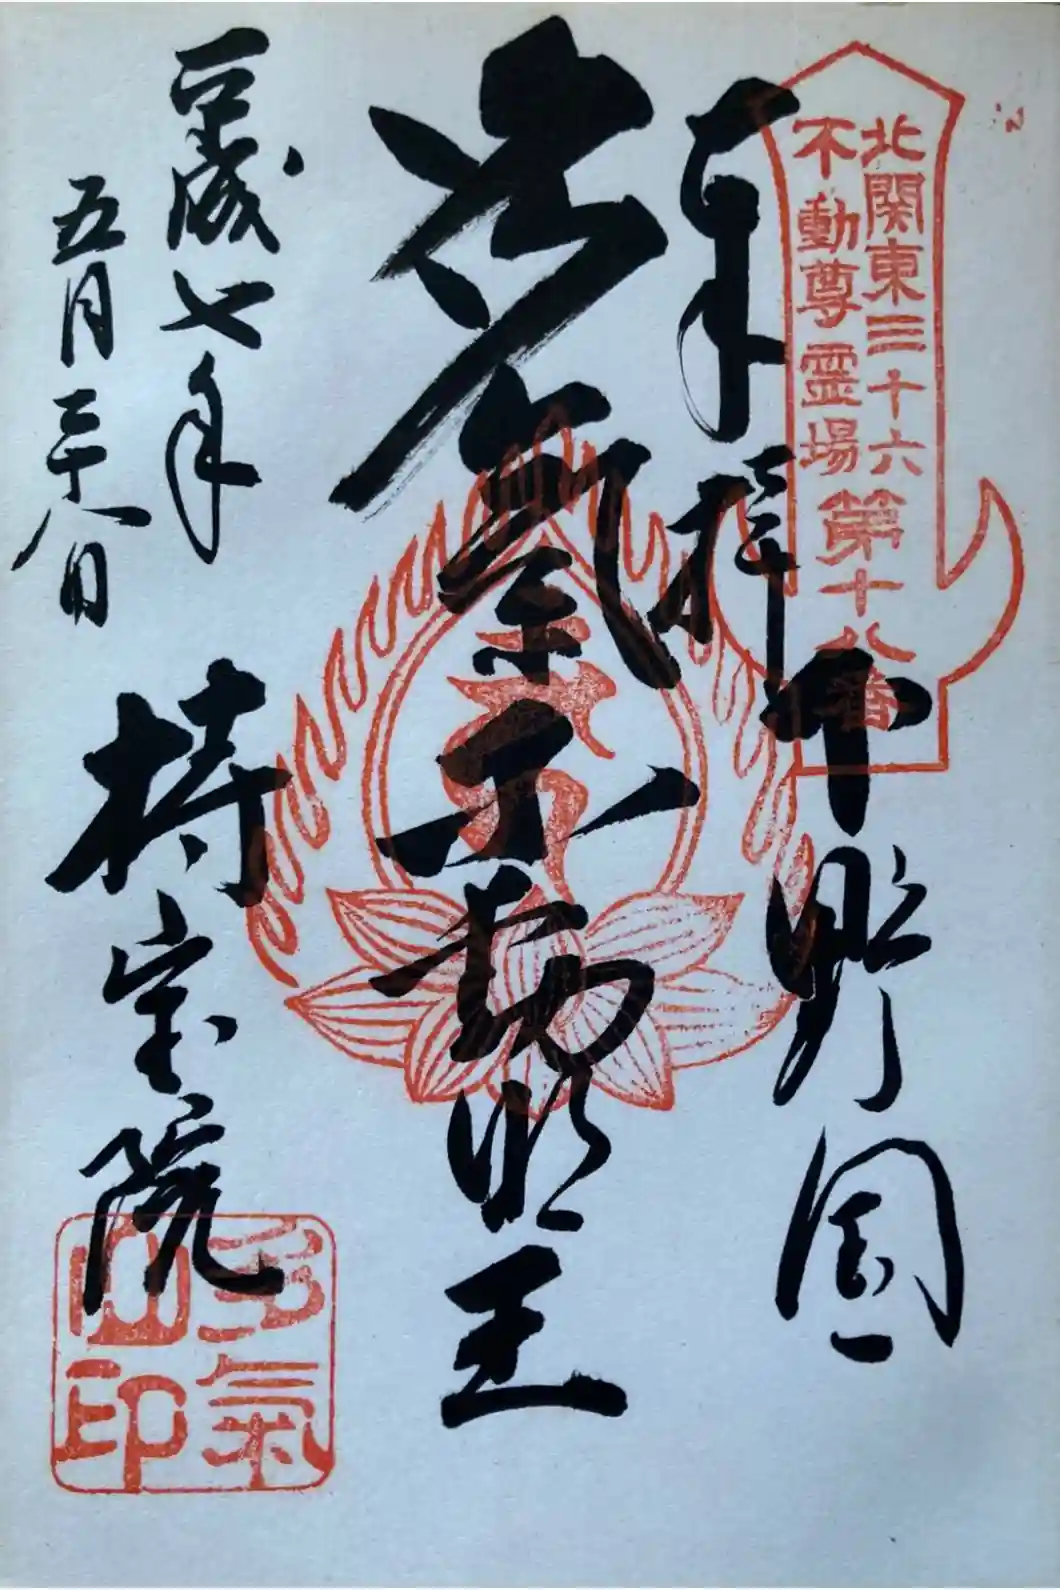 北関東三十六
不動尊霊場
第十八番
奉拝 下野国
多氣不動明王
平成七年
五月二十八日
持宝院
多氣
山印